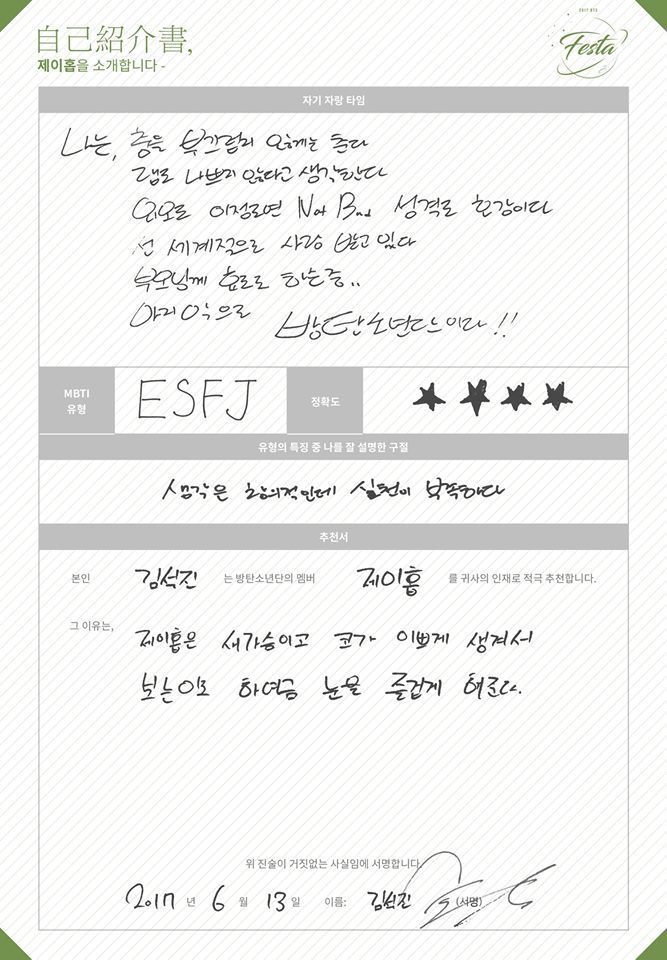 自己紹介書,
2017 BTS
Festa
제이홉을 소개합니다 -
자기 자랑 타임
나는, 춤을 부끄럽지 않게는 춘다
랩도 나쁘지 않다고 생각한다
외모로 이정도면 Not Bad 성격도 건강이다
전 세계적으로 사랑 받고 있다
부모님께 효도도 하는중..
마지막으로 방탄소년단이다!!
MBTI 유형
ESFJ
정확도
★★★★
유형의 특징 중 나를 잘 설명한 구절
생각은 창의적인데 실천이 부족하다
추천서
본인 김석진 는 방탄소년단의 멤버 제이홉 를 귀사의 인재로 적극 추천합니다.
그 이유는,
제이홉은 새가슴이고 코가 이쁘게 생겨서
보는이로 하여금 눈을 즐겁게 해준다.
위 진술이 거짓없는 사실임에 서명합니다.
2017 년 6 월 13 일 이름: 김석진 (서명)